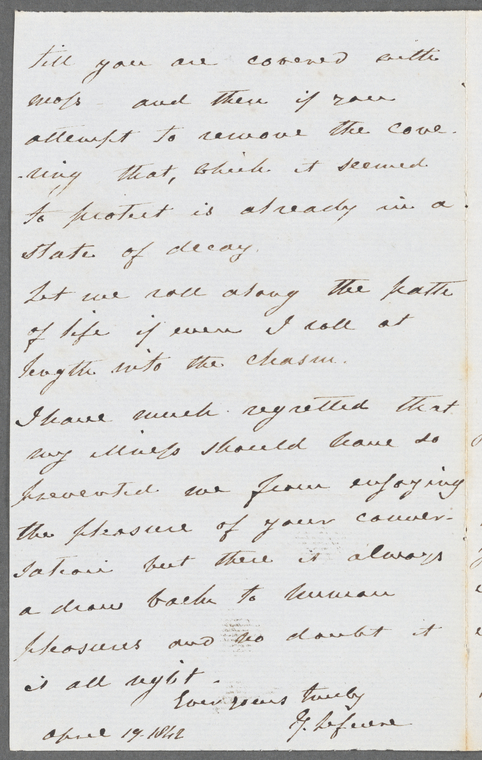 till you are covered with
moss and then if you
attempt to remove the cove-
-ring that, which it seemed
to protect is already in a
state of decay.
Let me roll along the path
of life if even I roll at
length into the chasm.
I have much regretted that
my illness should have so
prevented me from enjoying
the pleasure of your conver-
sation but there is always
a draw back to human
pleasures and no doubt it
is all right.
Ever yours truly
April 19. 1842